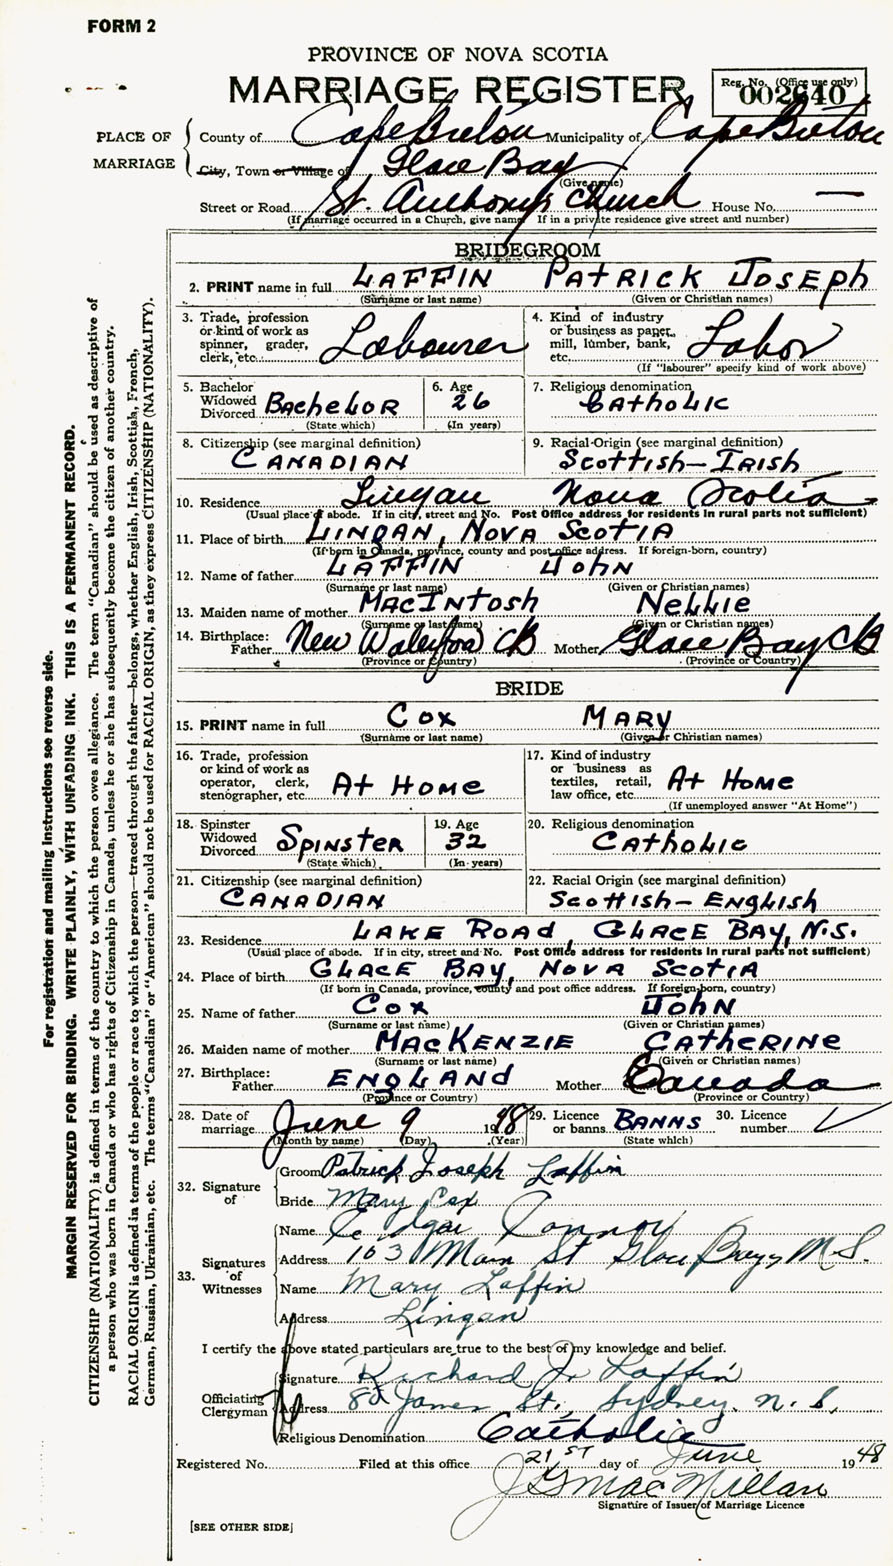 FORM 2
PROVINCE OF NOVA SCOTIA
MARRIAGE REGISTER
Reg. No. (Office use only)
002640
PLACE OF MARRIAGE
County of Cape Breton Municipality of Cape Breton
City, Town or Village of Glace Bay
(Give name)
Street or Road St. Anthony's Church House No. —
(If marriage occurred in a Church, give name If in a private residence give street and number)
BRIDEGROOM
2. PRINT name in full LAFFIN PATRICK JOSEPH
(Surname or last name) (Given or Christian names)
3. Trade, profession or kind of work as spinner, grader, clerk, etc. Labourer
4. Kind of industry or business as paper mill, lumber, bank, etc. Labor
(If "labourer" specify kind of work above)
5. Bachelor Widowed Divorced BACHELOR
(State which)
6. Age 26
(In years)
7. Religious denomination CATHOLIC
8. Citizenship (see marginal definition) CANADIAN
9. Racial Origin (see marginal definition) SCOTTISH-IRISH
10. Residence Lingan Nova Scotia
(Usual place of abode. If in city, street and No. Post Office address for residents in rural parts not sufficient)
11. Place of birth LINGAN, NOVA SCOTIA
(If born in Canada, province, county and post office address. If foreign-born, country)
12. Name of father LAFFIN JOHN
(Surname or last name) (Given or Christian names)
13. Maiden name of mother MACINTOSH NELLIE
(Surname or last name) (Given or Christian names)
14. Birthplace: Father New Waterford CB Mother Glace Bay CB
(Province or Country) (Province or Country)
BRIDE
15. PRINT name in full COX MARY
(Surname or last name) (Given or Christian names)
16. Trade, profession or kind of work as operator, clerk, stenographer, etc. AT HOME
17. Kind of industry or business as textiles, retail, law office, etc. AT HOME
(If unemployed answer "At Home")
18. Spinster Widowed Divorced SPINSTER
(State which)
19. Age 32
(In years)
20. Religious denomination CATHOLIC
21. Citizenship (see marginal definition) CANADIAN
22. Racial Origin (see marginal definition) SCOTTISH-ENGLISH
23. Residence LAKE ROAD, GLACE BAY, N.S.
(Usual place of abode. If in city, street and No. Post Office address for residents in rural parts not sufficient)
24. Place of birth GLACE BAY, NOVA SCOTIA
(If born in Canada, province, county and post office address. If foreign-born, country)
25. Name of father COX JOHN
(Surname or last name) (Given or Christian names)
26. Maiden name of mother MACKENZIE CATHERINE
(Surname or last name) (Given or Christian names)
27. Birthplace: Father ENGLAND Mother Canada
(Province or Country) (Province or Country)
28. Date of marriage June 9 1948
(Month by name) (Day) (Year)
29. Licence or banns BANNS
(State which)
30. Licence number
32. Signature of
Groom Patrick Joseph Laffin
Bride Mary Cox
33. Signatures of Witnesses
Name Edgar Connor
Address 163 Main St Glace Bay, N.S.
Name Mary Laffin
Address Lingan
I certify the above stated particulars are true to the best of my knowledge and belief.
Officiating Clergyman
Signature Richard J. Laffin
Address James St., Sydney, N.S.
Religious Denomination Catholic
Registered No. Filed at this office 21st day of June 1948
J G MacMillan
Signature of Issuer of Marriage Licence
[SEE OTHER SIDE]
For registration and mailing instructions see reverse side.
MARGIN RESERVED FOR BINDING. WRITE PLAINLY, WITH UNFADING INK. THIS IS A PERMANENT RECORD.
CITIZENSHIP (NATIONALITY) is defined in terms of the country to which the person owes allegiance. The term "Canadian" should be used as descriptive of
a person who was born in Canada or who has rights of Citizenship in Canada, unless he or she has subsequently become the citizen of another country.
RACIAL ORIGIN is defined in terms of the people or race to which the person—traced through the father—belongs, whether English, Irish, Scottish, French,
German, Russian, Ukrainian, etc. The terms "Canadian" or "American" should not be used for RACIAL ORIGIN, as they express CITIZENSHIP (NATIONALITY).